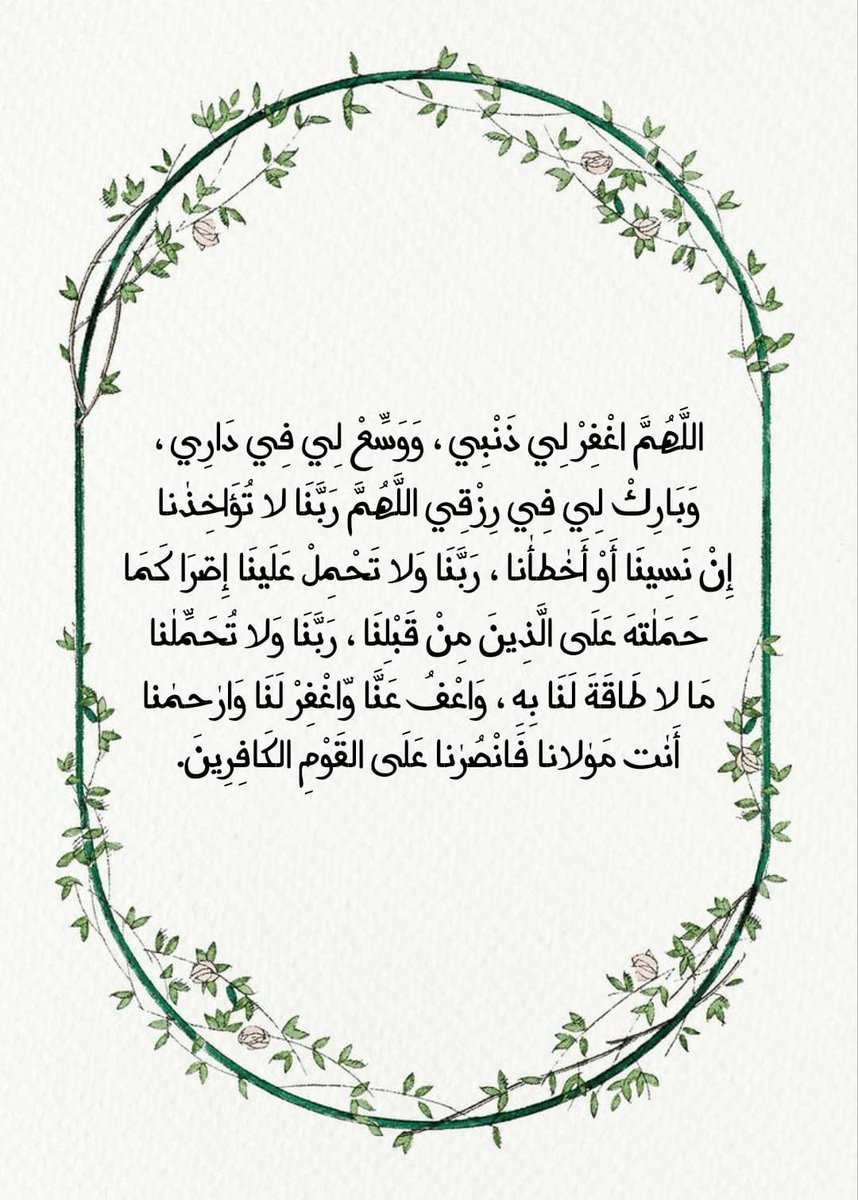 اللَّهُمَّ اغْفِرْ لِي ذَنْبِي ، وَوَسِّعْ لِي فِي دَارِي ،
وَبَارِكْ لِي فِي رِزْقِي اللَّهُمَّ رَبَّنَا لا تُؤَاخِذْنا
إِنْ نَسِينَا أَوْ أَخْطَأْنا ، رَبَّنَا وَلا تَحْمِلْ عَلَينَا إِصْرَا كَمَا
حَمَلْتهَ عَلَى الَّذِينَ مِنْ قَبْلِنَا ، رَبَّنَا وَلا تُحَمِّلْنا
مَا لا طَاقَةَ لَنَا بِه ، وَاعْفُ عَنَّا وّاغْفِرْ لَنَا وَارْحمْنا
أَنْت مَوْلانا فَانْصُرْنا عَلَى القَوْمِ الكَافِرِينَ.